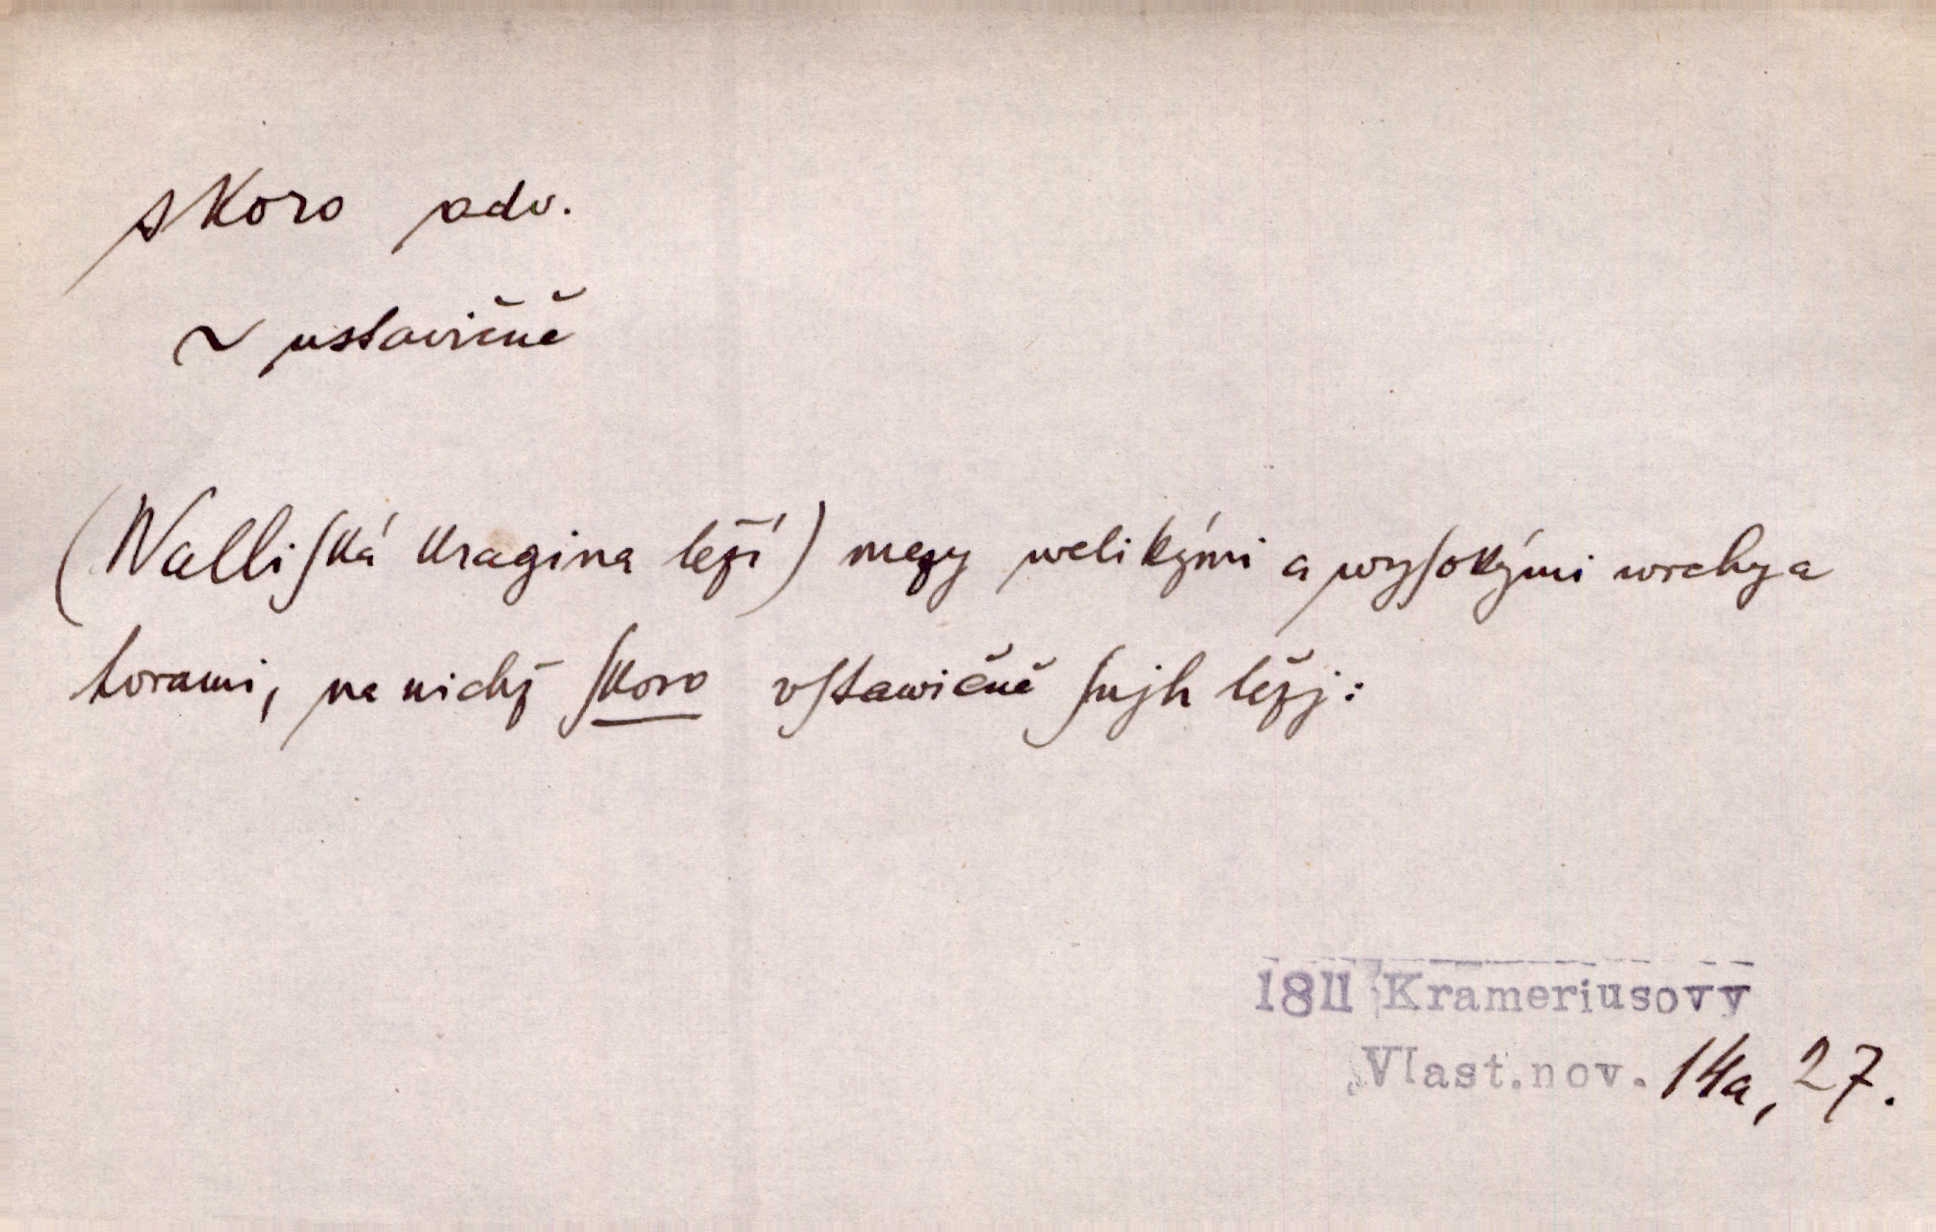 skoro adv.
~ ustavičně
(Walliſká kragina leží) mezy welikými a wyſokými wrchy a
horami, na nichž ſkoro vſtawičně ſnjh ležj:
1811 Krameriusovy
Vlast.nov. 14a, 27.